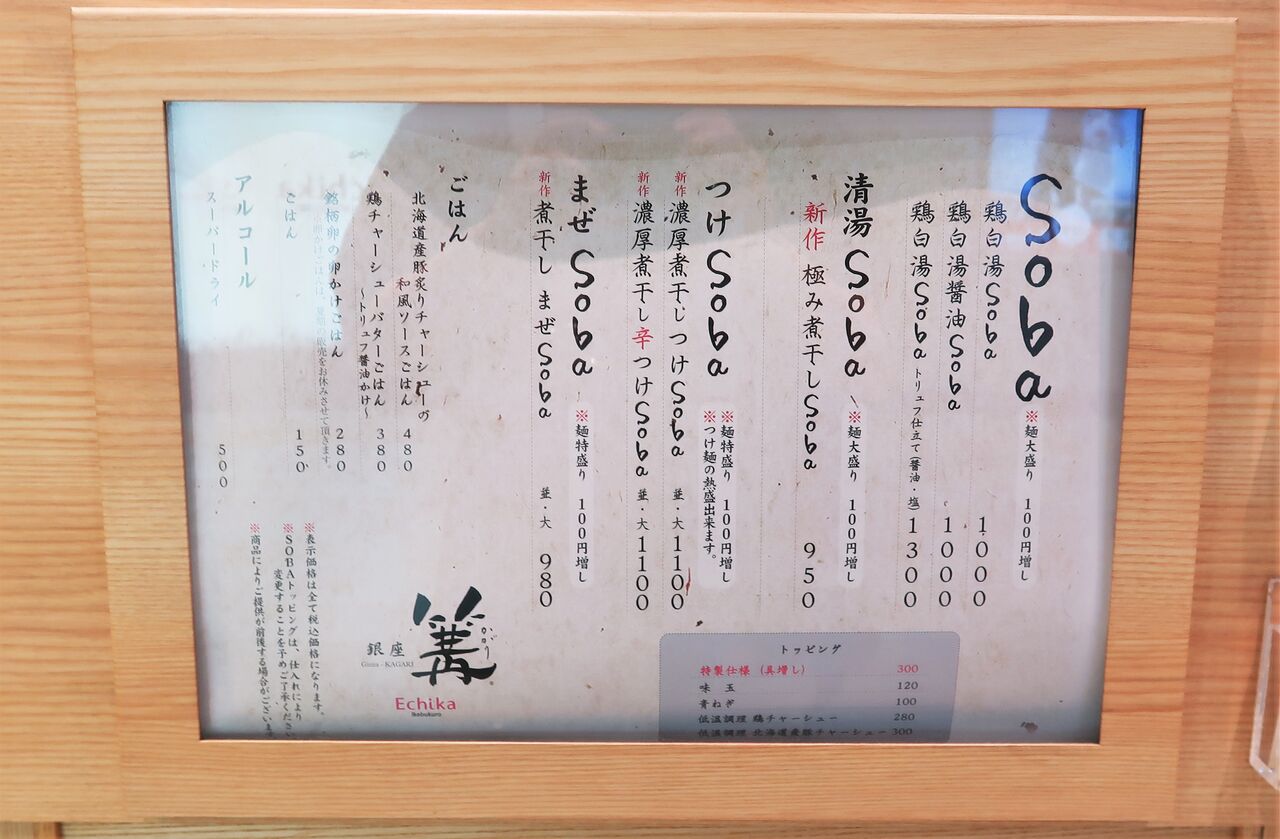 Soba ※麺大盛り 100円増し
鶏白湯Soba 1000
鶏白湯醤油Soba 1000
鶏白湯Soba トリュフ仕立て(醤油・塩) 1300
清湯Soba ※麺大盛り 100円増し
新作 極み煮干しSoba 950
つけSoba ※麺特盛り 100円増し
※つけ麺の熱盛出来ます。
新作 濃厚煮干しつけSoba 並・大 1100
新作 濃厚煮干し辛つけSoba 並・大 1100
まぜSoba ※麺特盛り 100円増し
新作 煮干し まぜSoba 並・大 980
ごはん
北海道産豚炙りチャーシューの
和風ソースごはん 480
鶏チャーシューバターごはん 380
〜トリュフ醤油かけ〜
銘柄卵の卵かけごはん 280
販売をお休みさせて頂きます。
ごはん 150
アルコール
スーパードライ 500
トッピング
特製仕様(具増し) 300
味 玉 120
青ねぎ 100
低温調理 鶏チャーシュー 280
低温調理 北海道産豚チャーシュー 300
篝
かがり
銀座
Ginza - KAGARI
Echika
Ikebukuro
※表示価格は全て税込価格になります。
※SOBAトッピングは、仕入れにより
変更することを予めご了承ください
※商品によりご提供が前後する場合がございます